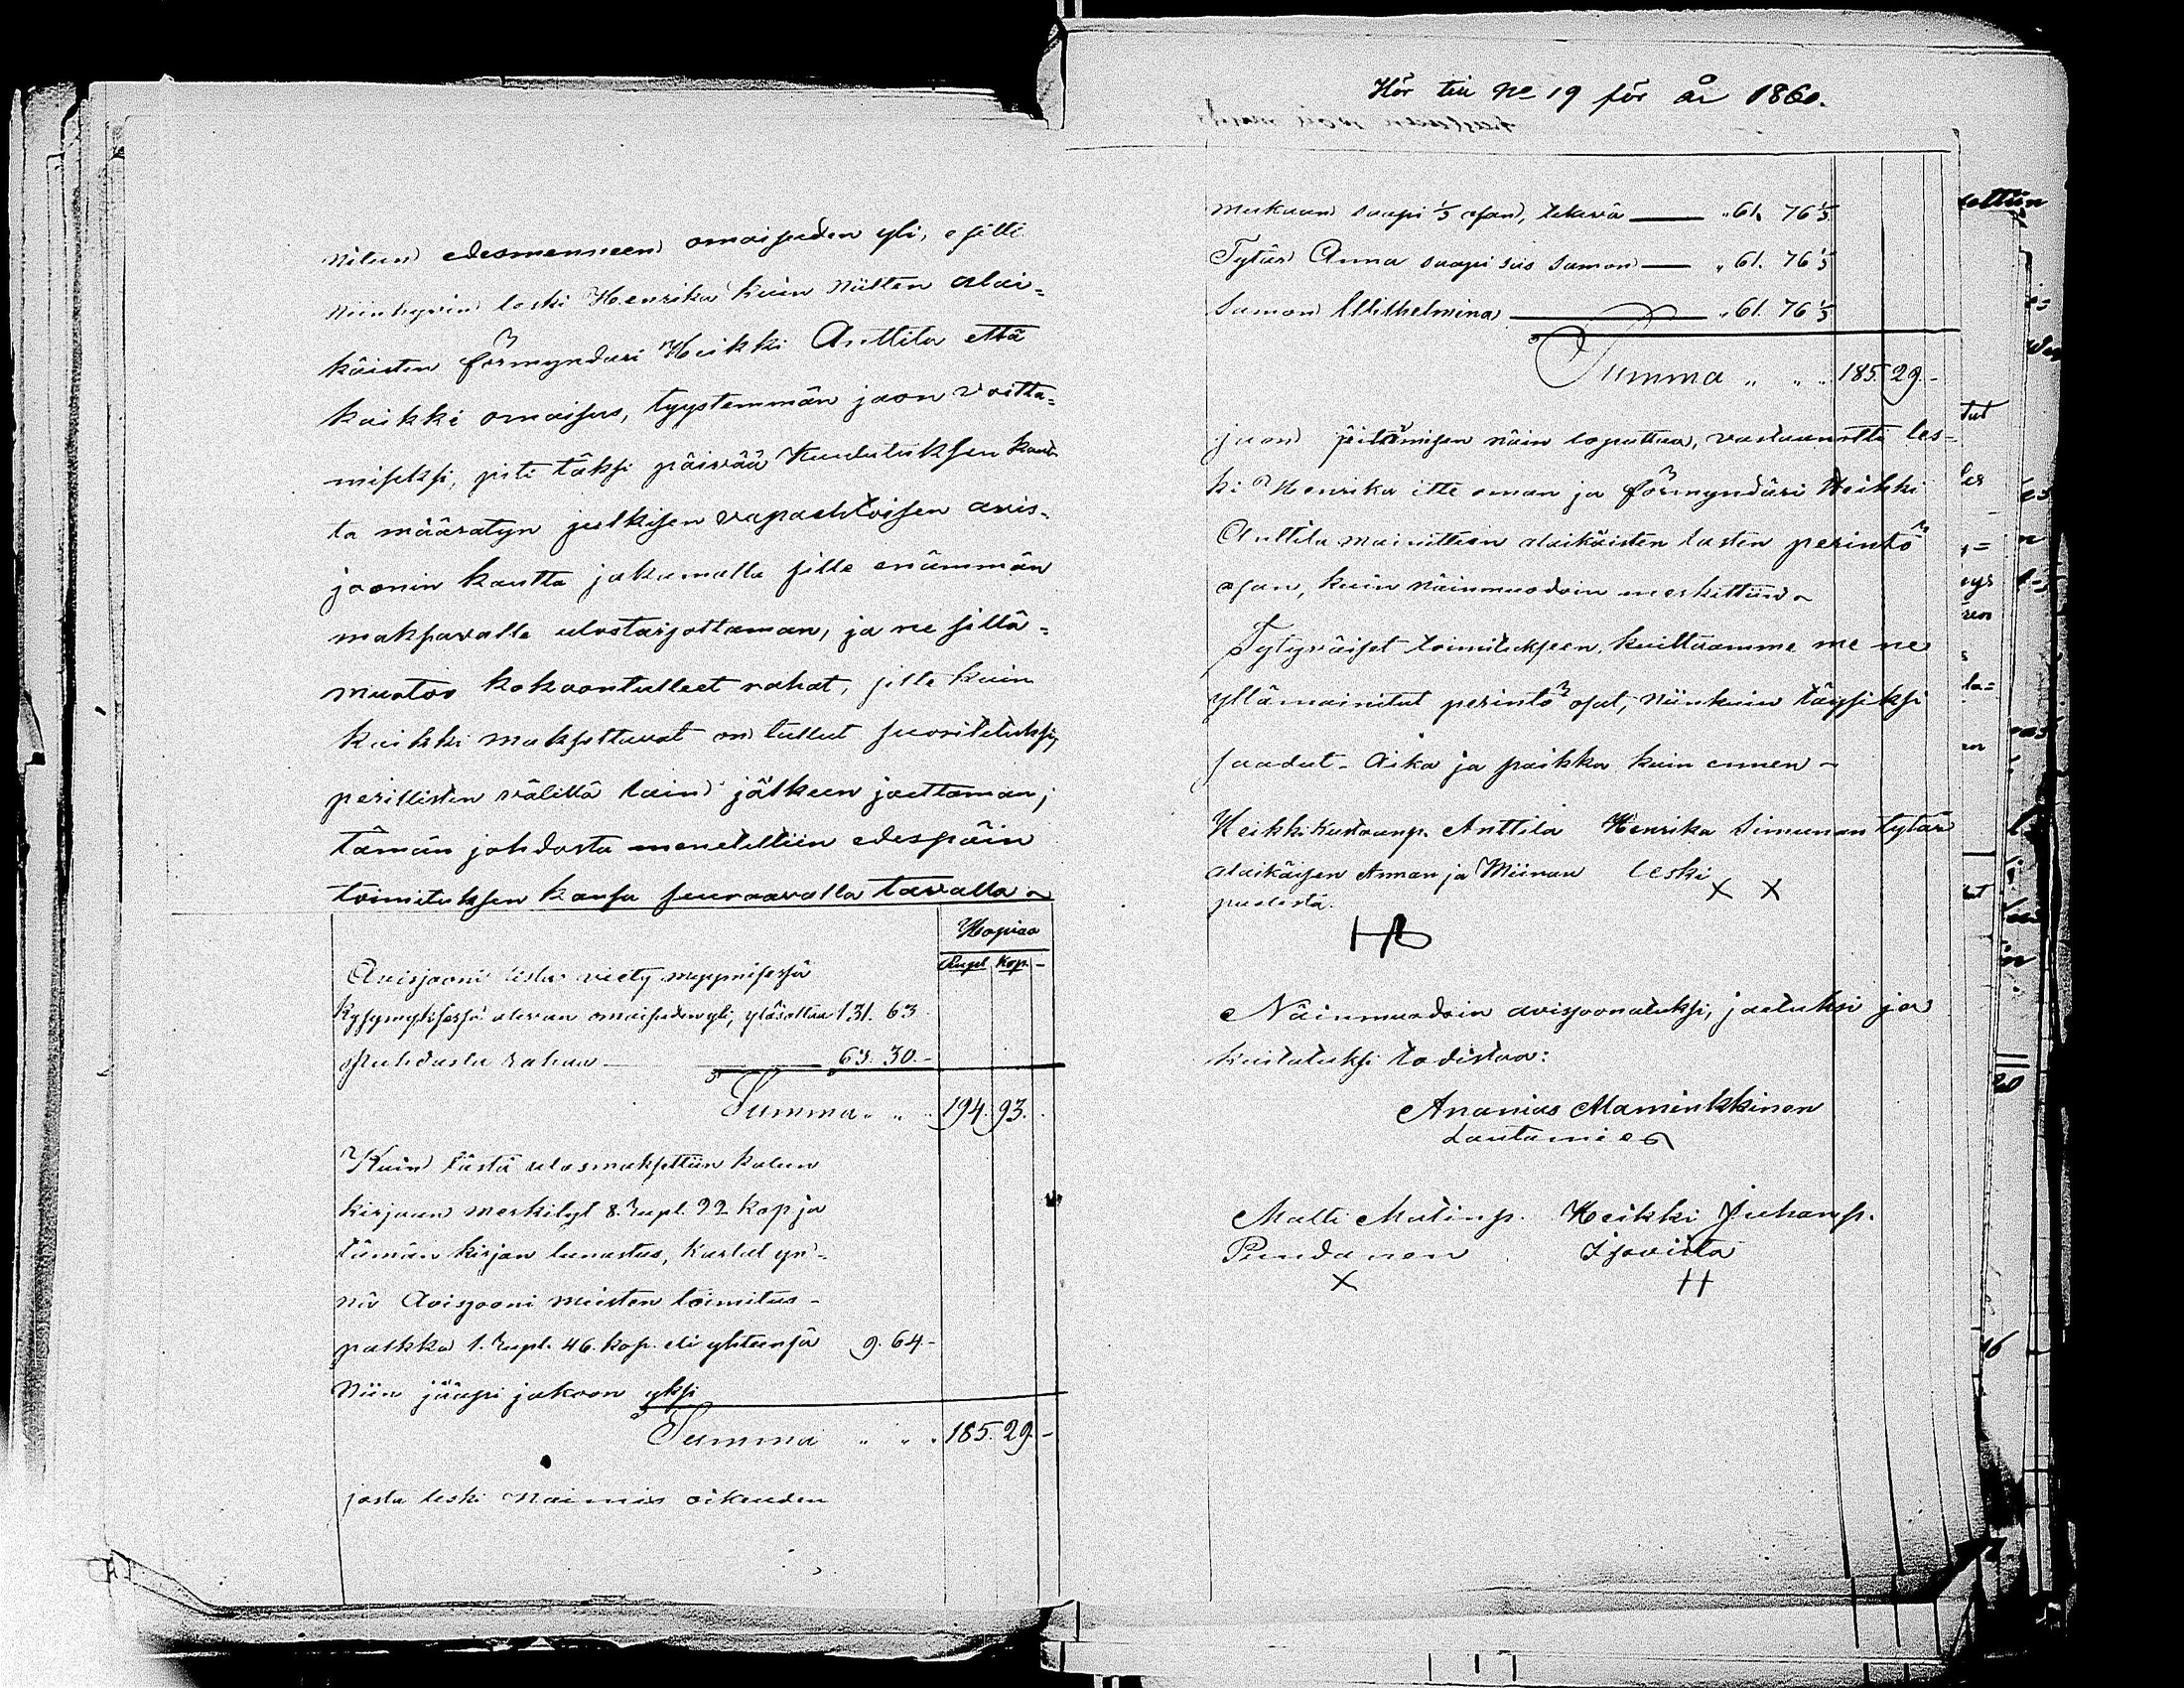 nitun edesmenneen omaisuden yli, esitti
niinhyvin leski Henrika kuin niitten alai=
käisten förmyndari Heikki Anttila että
kaikki omaisus, tyystemmän jaon voitta=
miseksi, piti täksi päivää kuulutuksen kaut-
ta määratyn julkisen vapaehtoisen avis-
joonin kautta jakamatta sille enämmän
maksavalle ulostarjottaman, ja ne sillä=
muotoo kokoontulleet rahat, sitte kuin
kaikki maksettavat on tullut suoritetuksi,
perillisten välillä lain jälkeen jaettaman;
tämän johdosta meneteltiin edespäin
toimituksen kansa seuraavalla tavalla ~
Hopiaa
Rupl. Kop. -
Avisjooni lista viety myymisessä
kysymyksessä olevan omaisuden yli, ylösottaa 131. 63
Puhdasta rahaa 63. 30.-
Summa „ „ 194. 93.
Kuin tästä ulosmaksettiin kalun
kirjaan merkityt 8. rupl. 22 kop ja
tämän kirjan lunastus, kartat yn-
nä Avisjooni miesten toimitus-
palkka 1. rupl. 46. kop. eli yhteensä 9. 64.-
Niin jääpi jakoon yksi
Summa „ „ „ 185. 29. -
josta leski Naimis oikeuden
Hör till No 19 för år 1860.
mukaan saapi ⅓ osan, tekevä „ 61. 76⅓
Tytär Anna saapi siis saman „ 61. 76⅓
Saman Wilhelmina „ 61. 76⅓
Summa „ „ „ 185. 29.-
jaon pitämisen näin loputtua, vastaanotti les=
ki Henrika itte oman ja förmyndäri Heikki
Anttila mainittein alaikäisten lasten perintö
osan, kuin näinmuodoin merkittiin ~
Tytyväiset toimitukseen, kuittaamme me ne
yllämainitut perintö osat, niinkuin täysiksi
saadut - Aika ja paikka kuin ennen -
Heikki Kustaanp. Anttila Henrika Simunan tytär
alaikäisen Annan ja Miinan leski
puolesta. X X
Näinmuodoin avisjoonatuksi, jaetuksi ja
kuitatuksi todistaa:
Ananias Maminkkinen
Lautamies
Matti Matinp. Heikki Juhanp.
Isovilta
X H